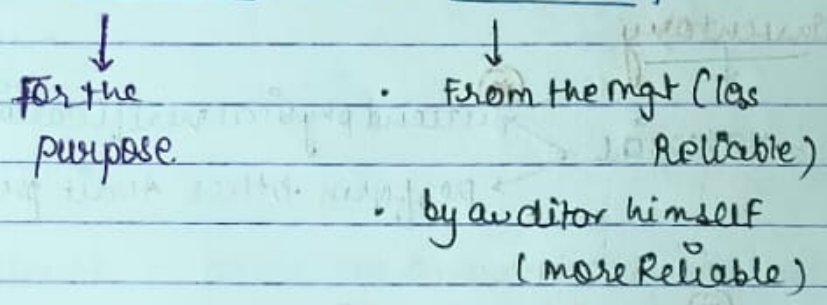 For the
purpose.
• From the mgt (less
Reliable)
• by auditor himself
(more Reliable)